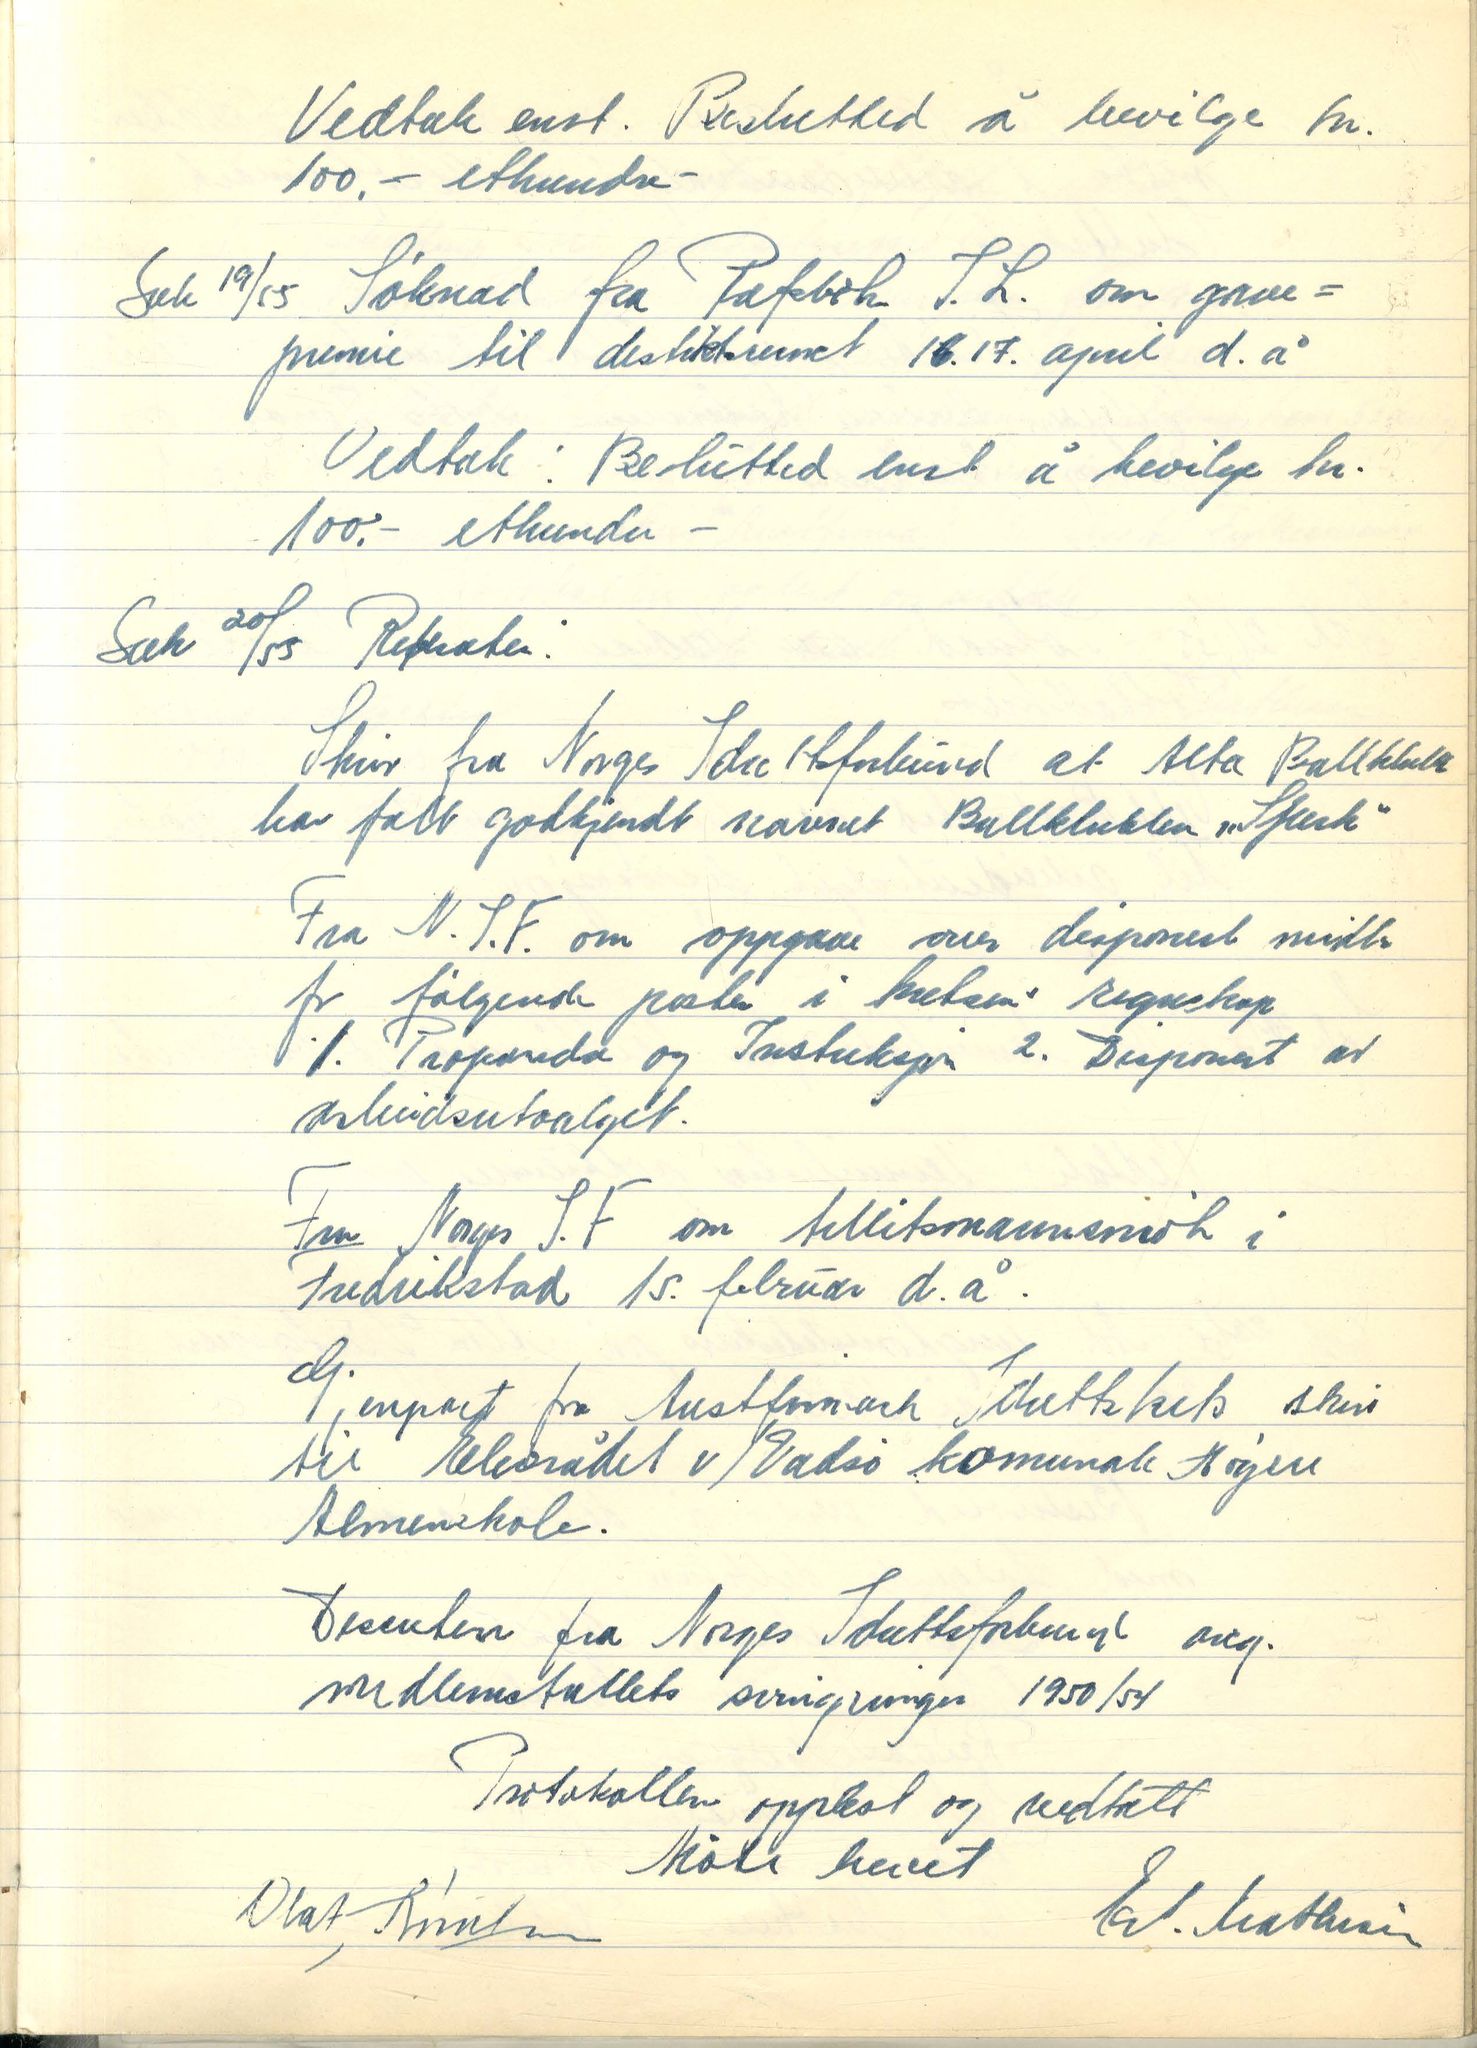 Vedtak enst. Beslutted å bevilge kr.
100.- ethundre-
Sak 19/55 Söknad fra Rafsbotn I.L. om gave=
premie til distriktsrennet 16. 17. april d. å
Vedtak: Beslutted enst å bevilge kr.
100.- ethundre -
Sak 20/55 Referater:
Skriv fra Norges Idrettsforbund at Alta Ballklubb
har fått godkjendt navnet Ballklubben "Spark"
Fra N.I.F. om oppgave over disponert midler
for fölgende poster i kretsens regnskap
1. Propaganda og Instruksjon 2. Disponert av
arbeidsutvalget.
Fra Norges I.F om tillitsmannsmöte i
Fredrikstad 15. februar d.å.
Gjenpart fra Austfinnmark Idrettskrets skriv
til Elevrådet v/Vadsö komunale Högere
Almenskole.
fra Norges Idrettsforbund ang.
medlemstallets svingninger 1950/54
Protokollen opplest og vedtatt
Möte hevet
Olaf
Ed. Mathisen